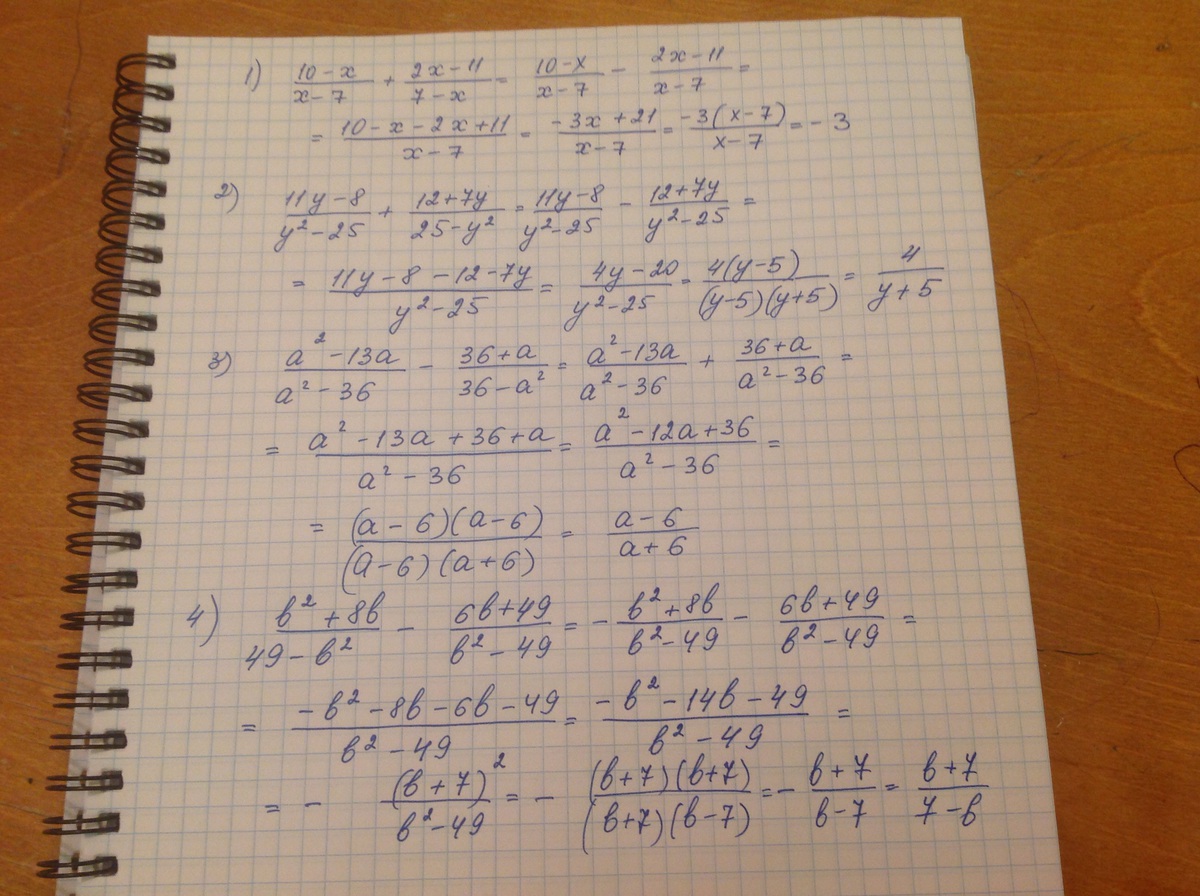 1) (10-x)/(x-7) + (2x-11)/(7-x) = (10-x)/(x-7) - (2x-11)/(x-7) =
= (10-x-2x+11)/(x-7) = (-3x+21)/(x-7) = (-3(x-7))/(x-7) = -3
2) (11y-8)/(y²-25) + (12+7y)/(25-y²) = (11y-8)/(y²-25) - (12+7y)/(y²-25) =
= (11y-8-12-7y)/(y²-25) = (4y-20)/(y²-25) = (4(y-5))/((y-5)(y+5)) = 4/(y+5)
3) (a²-13a)/(a²-36) - (36+a)/(36-a²) = (a²-13a)/(a²-36) + (36+a)/(a²-36) =
= (a²-13a+36+a)/(a²-36) = (a²-12a+36)/(a²-36) =
= ((a-6)(a-6))/((a-6)(a+6)) = (a-6)/(a+6)
4) (b²+8b)/(49-b²) - (6b+49)/(b²-49) = -(b²+8b)/(b²-49) - (6b+49)/(b²-49) =
= (-b²-8b-6b-49)/(b²-49) = (-b²-14b-49)/(b²-49) =
= -(b+7)²/(b²-49) = -((b+7)(b+7))/((b+7)(b-7)) = -(b+7)/(b-7) = (b+7)/(7-b)